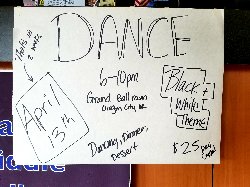 DANCE
6-10pm
Grand Ballroom
Oregon City, OR
Dancing, Dinner,
Dessert
April
13th
Black +
White
Theme!
$25 per